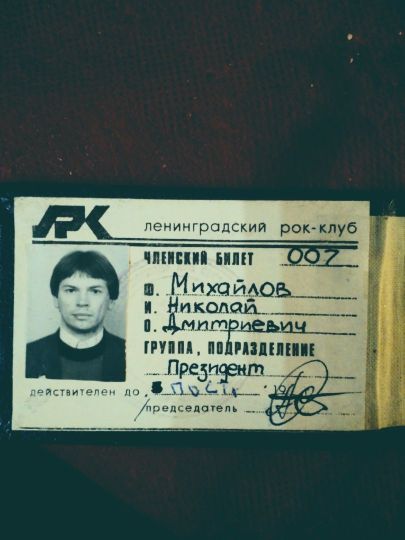 ЛРК
ленинградский рок-клуб
ЧЛЕНСКИЙ БИЛЕТ 007
Ф. Михайлов
И. Николай
О. Дмитриевич
ГРУППА, ПОДРАЗДЕЛЕНИЕ
Президент
действителен до
председатель